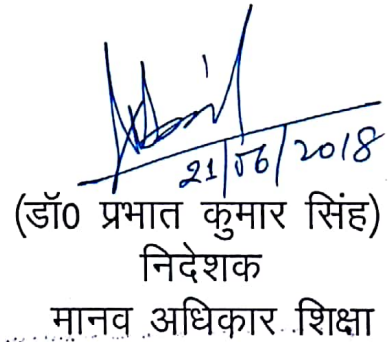 21/06/2018
(डॉ0 प्रभात कुमार सिंह)
निदेशक
मानव अधिकार शिक्षा